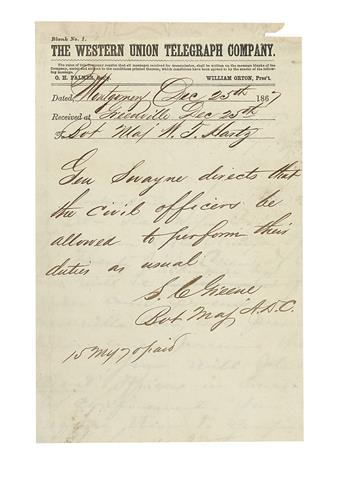 Blank No. 1.
THE WESTERN UNION TELEGRAPH COMPANY.
The rules of this Company require that all messages received for transmission, shall be written on the message blanks of the Company, under and subject to the conditions printed thereon, which conditions have been agreed to by the sender of the following message.
O. H. PALMER, Sec'y. WILLIAM ORTON, Pres't.
Dated, Montgomery Dec 25th 1867
Received at Greenville Dec 25th
To Bvt Maj W. T. Hartz
Gen Swayne directs that
the civil officers be
allowed to perform their
duties as usual
S. C Greene
Bvt Maj A.D.C.
15 paid